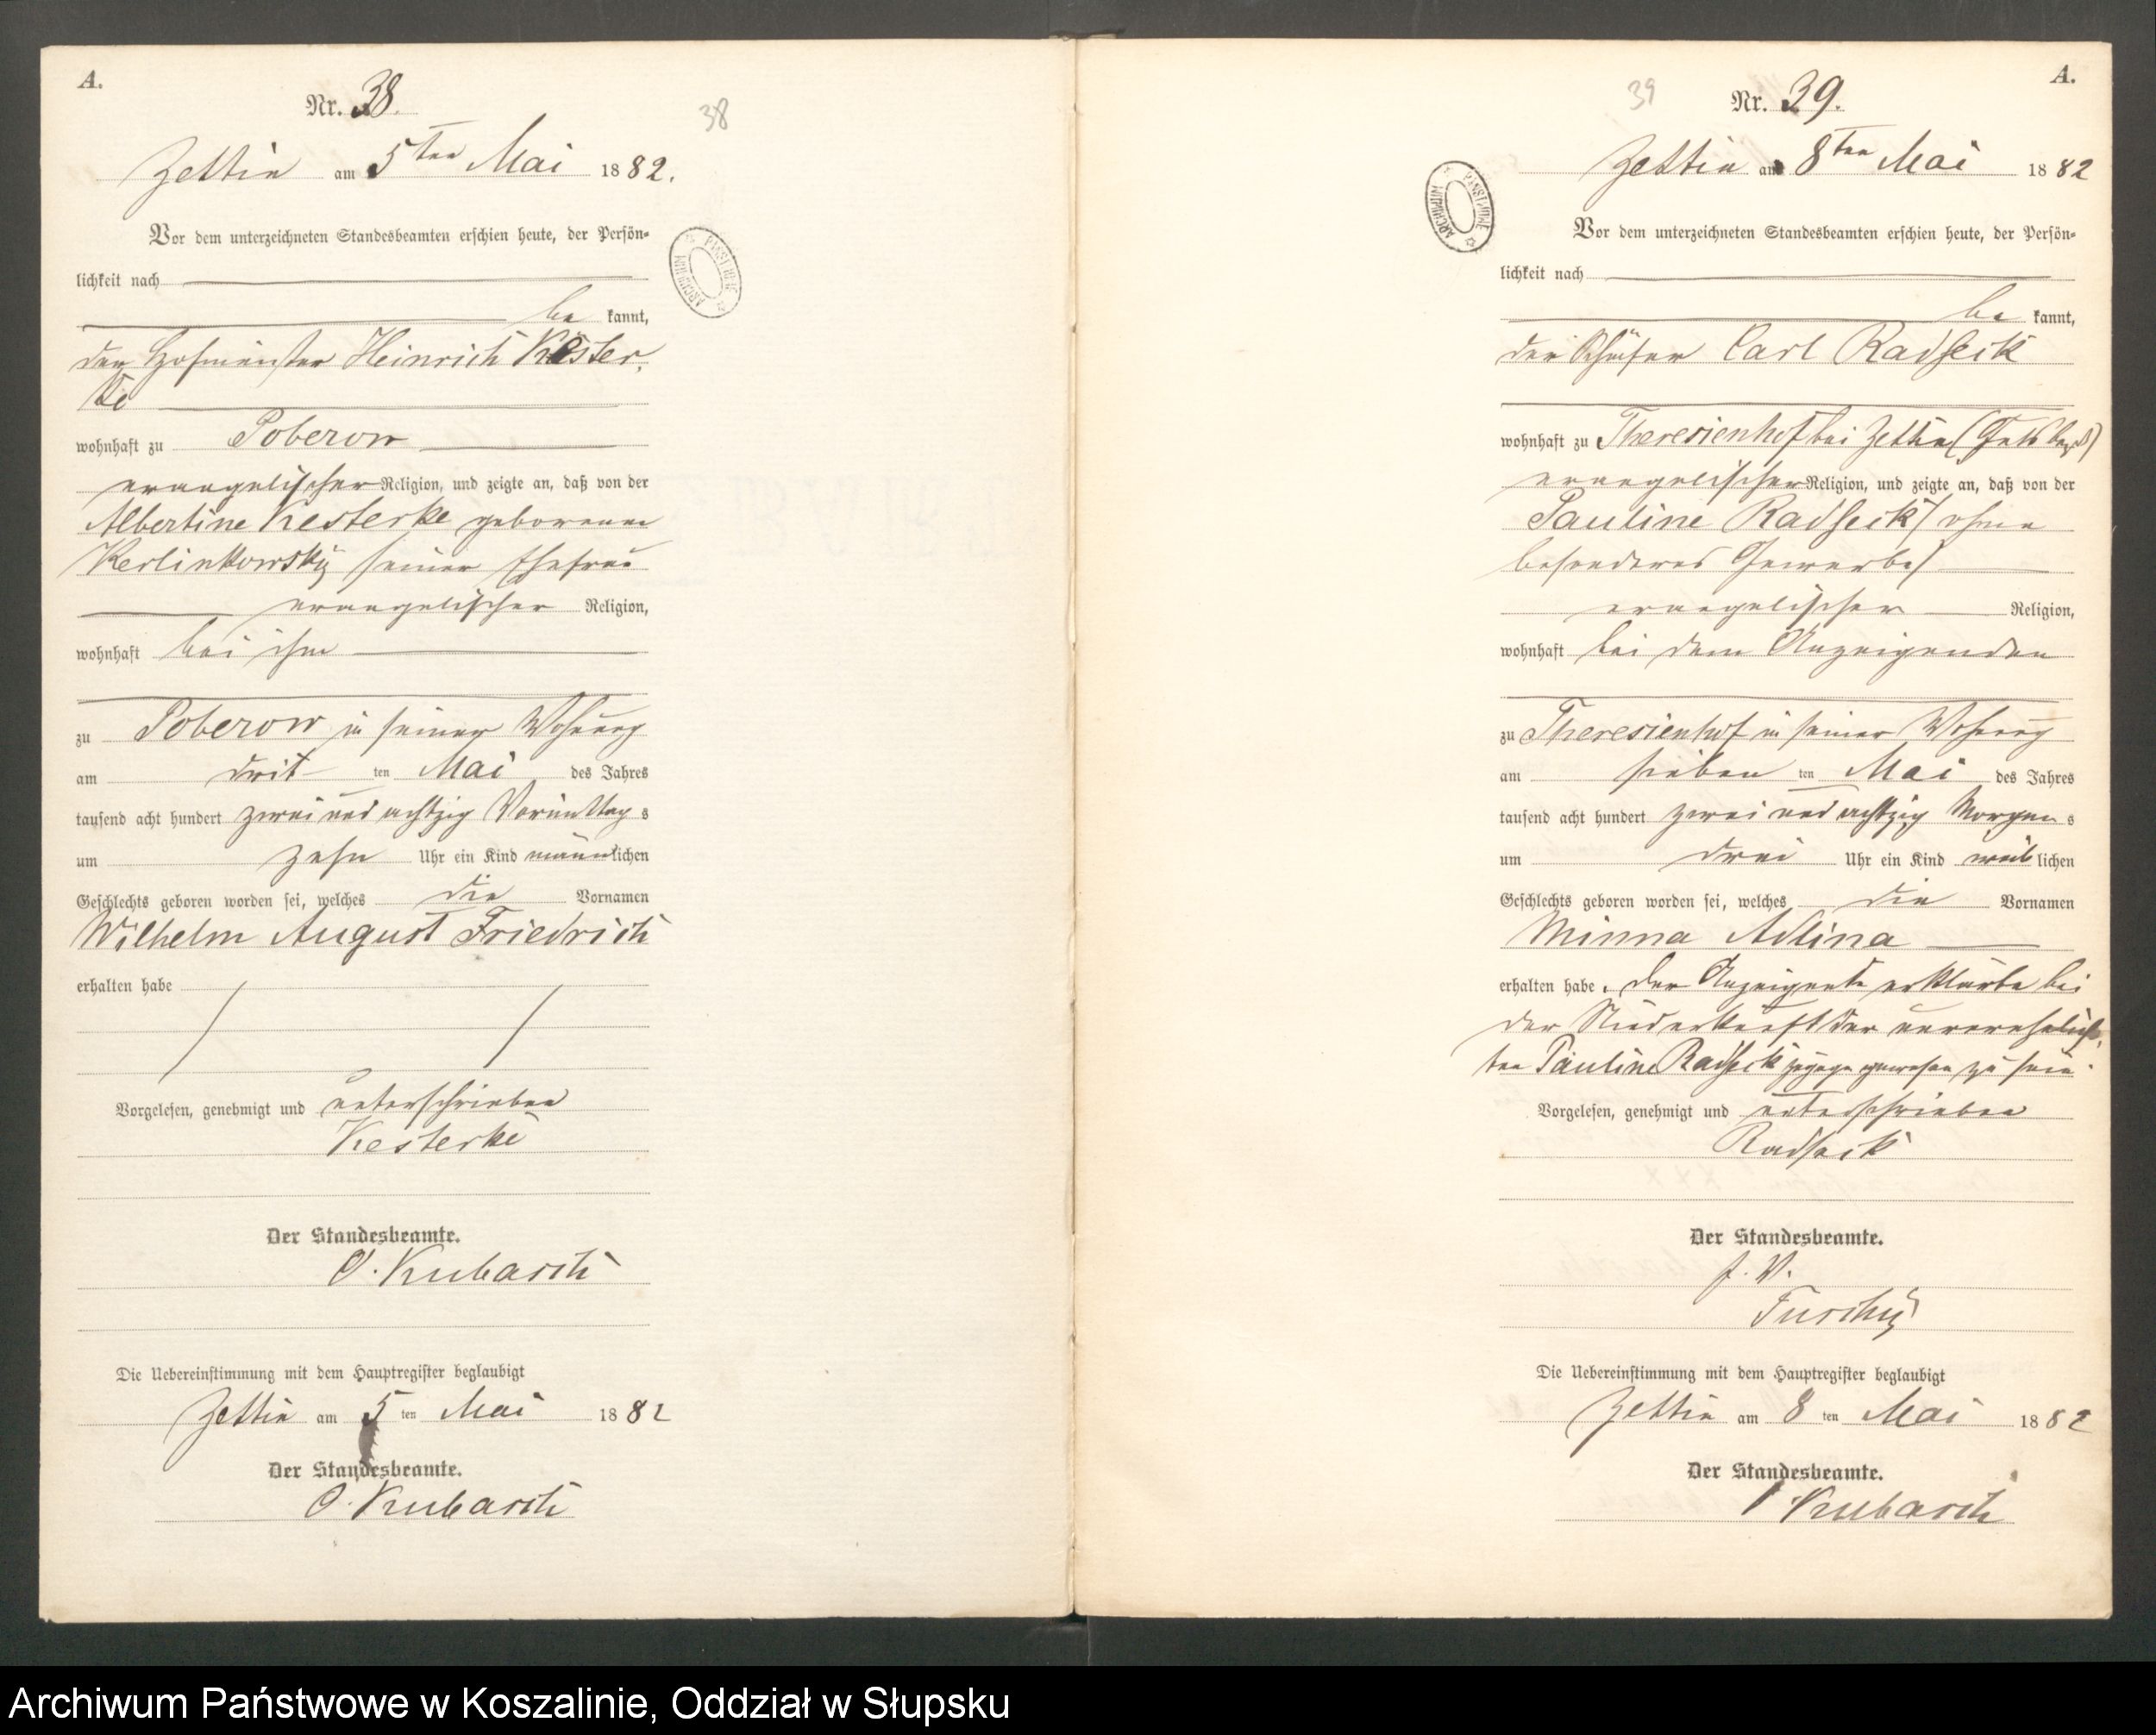 A.
Nr. 38.
38
Zettin am 5ten Mai 1882.
Vor dem unterzeichneten Standesbeamten erschien heute, der Persön-
lichkeit nach
be kannt,
der Hofmeister Heinrich Kester-
ke
wohnhaft zu Poberow
evangelischer Religion, und zeigte an, daß von der
Albertine Kesterke geborenen
Kerlinkowsky seiner Ehefrau
evangelischer Religion,
wohnhaft bei ihm
zu Poberow in seiner Wohnung
am drit ten Mai des Jahres
tausend acht hundert zwei und achtzig Vormittag s
um zehn Uhr ein Kind männlichen
Geschlechts geboren worden sei, welches die Vornamen
Wilhelm August Friedrich
erhalten habe
Vorgelesen, genehmigt und unterschrieben
Kesterke
Der Standesbeamte.
O. Kubasch
Die Uebereinstimmung mit dem Hauptregister beglaubigt
Zettin am 5 ten Mai 1882
Der Standesbeamte.
O. Kubasch
A.
39
Nr. 39.
Zettin am 8ten Mai 1882
ARCHIWUM PAŃSTWOWE
Vor dem unterzeichneten Standesbeamten erschien heute, der Persön-
lichkeit nach
be kannt,
der Schäfer Carl Radseck
wohnhaft zu Theresienhof bei Zettin (Gutsbez)
evangelischer Religion, und zeigte an, daß von der
Pauline Radseck (ohne
besonderes Gewerbe)
evangelischer Religion,
wohnhaft bei dem Anzeigenden
zu Theresienhof in seiner Wohnung
am sieben ten Mai des Jahres
tausend acht hundert zwei und achtzig Morgen s
um drei Uhr ein Kind weiblichen
Geschlechts geboren worden sei, welches die Vornamen
Minna Adlina
erhalten habe. Der Anzeigende erklärte bei
der Niederkunft der unverehelich-
ten Pauline Radseck zugegen gewesen zu sein.
Vorgelesen, genehmigt und unterschrieben
Radseck
Der Standesbeamte.
J. V.
Die Uebereinstimmung mit dem Hauptregister beglaubigt
Zettin am 8 ten Mai 1882
Der Standesbeamte.
Kubasch
Archiwum Państwowe w Koszalinie, Oddział w Słupsku